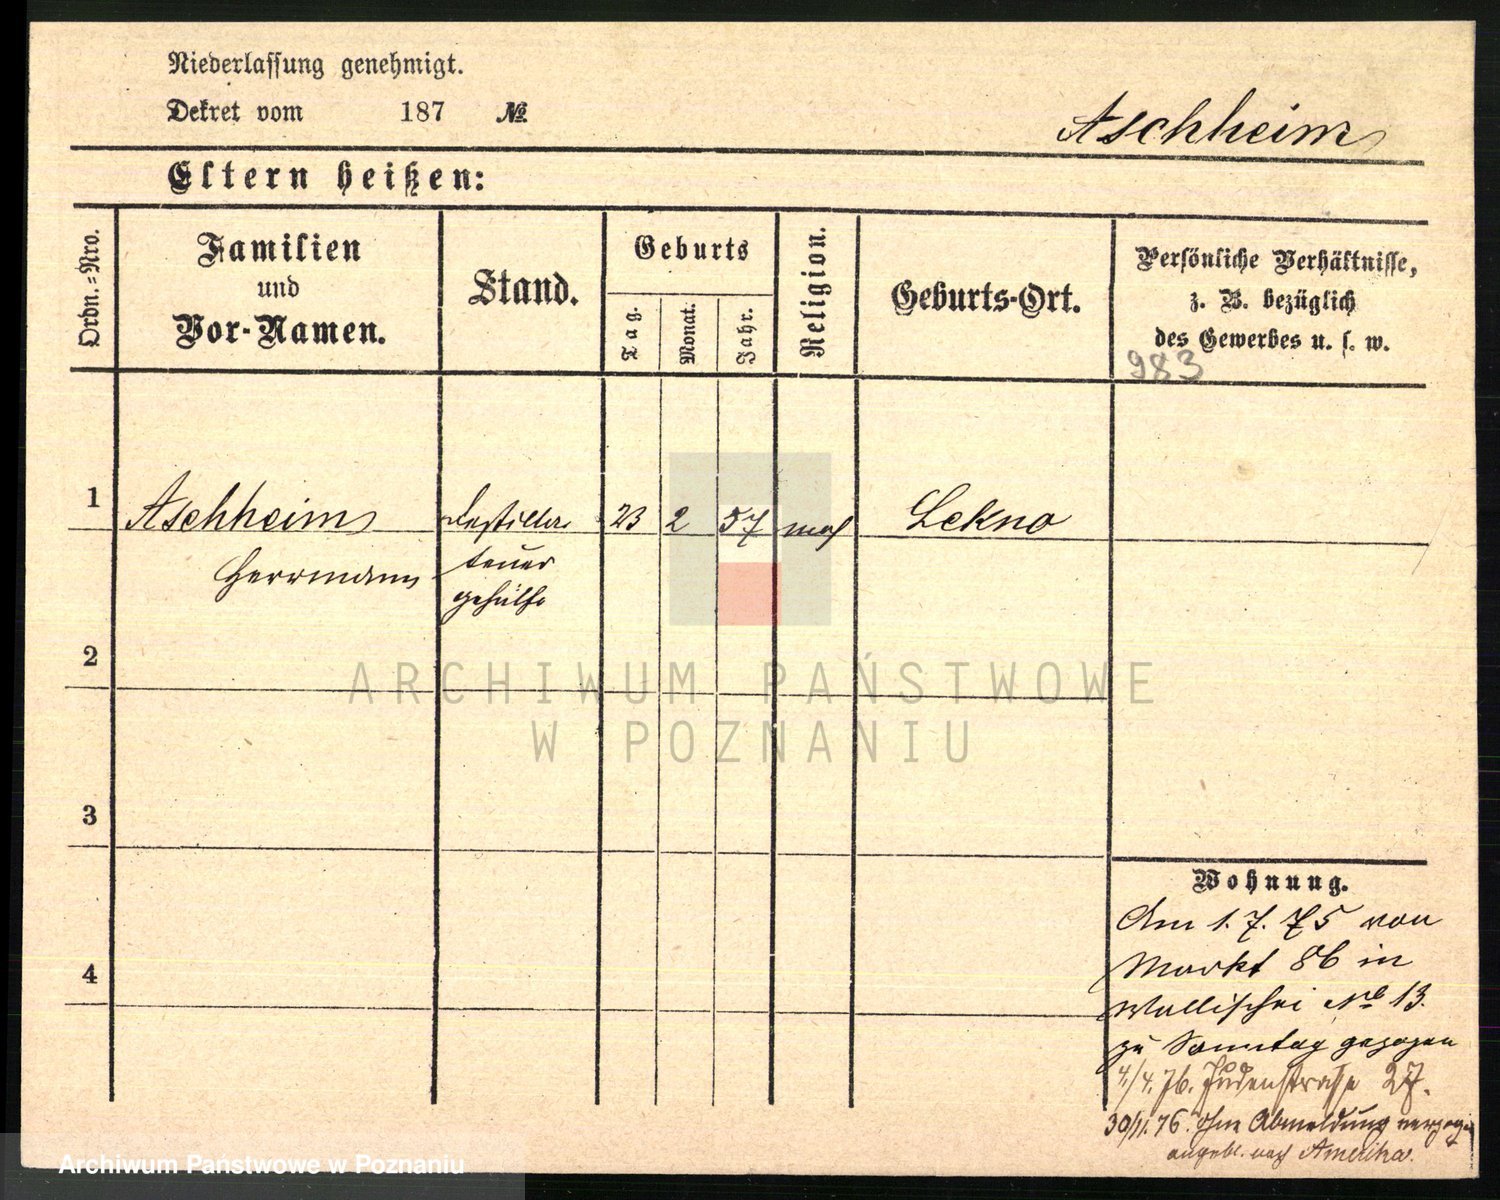 Niederlassung genehmigt.
Dekret vom 187 №
Aschheim
Eltern heißen:
Ordn.=Nro.
Familien
und
Vor-Namen.
Stand.
Geburts
Tag.
Monat.
Jahr.
Religion.
Geburts-Ort.
Persönliche Verhältnisse,
z. B. bezüglich
des Gewerbes u. s. w.
983
1 Aschheim Destilla 23 2 57 mos Lekno
Herrmann teuer
gehülfe
2
3
4
ARCHIWUM PAŃSTWOWE
W POZNANIU
Wohnung.
Am 1.7.75 von
Markt 86 in
Wallischei No 13.
zu Sonntag gezogen
4/4.76. Judenstraße 27.
30/11.76. ohne Abmeldung verzogen
angebl. nach Amerika.
Archiwum Państwowe w Poznaniu